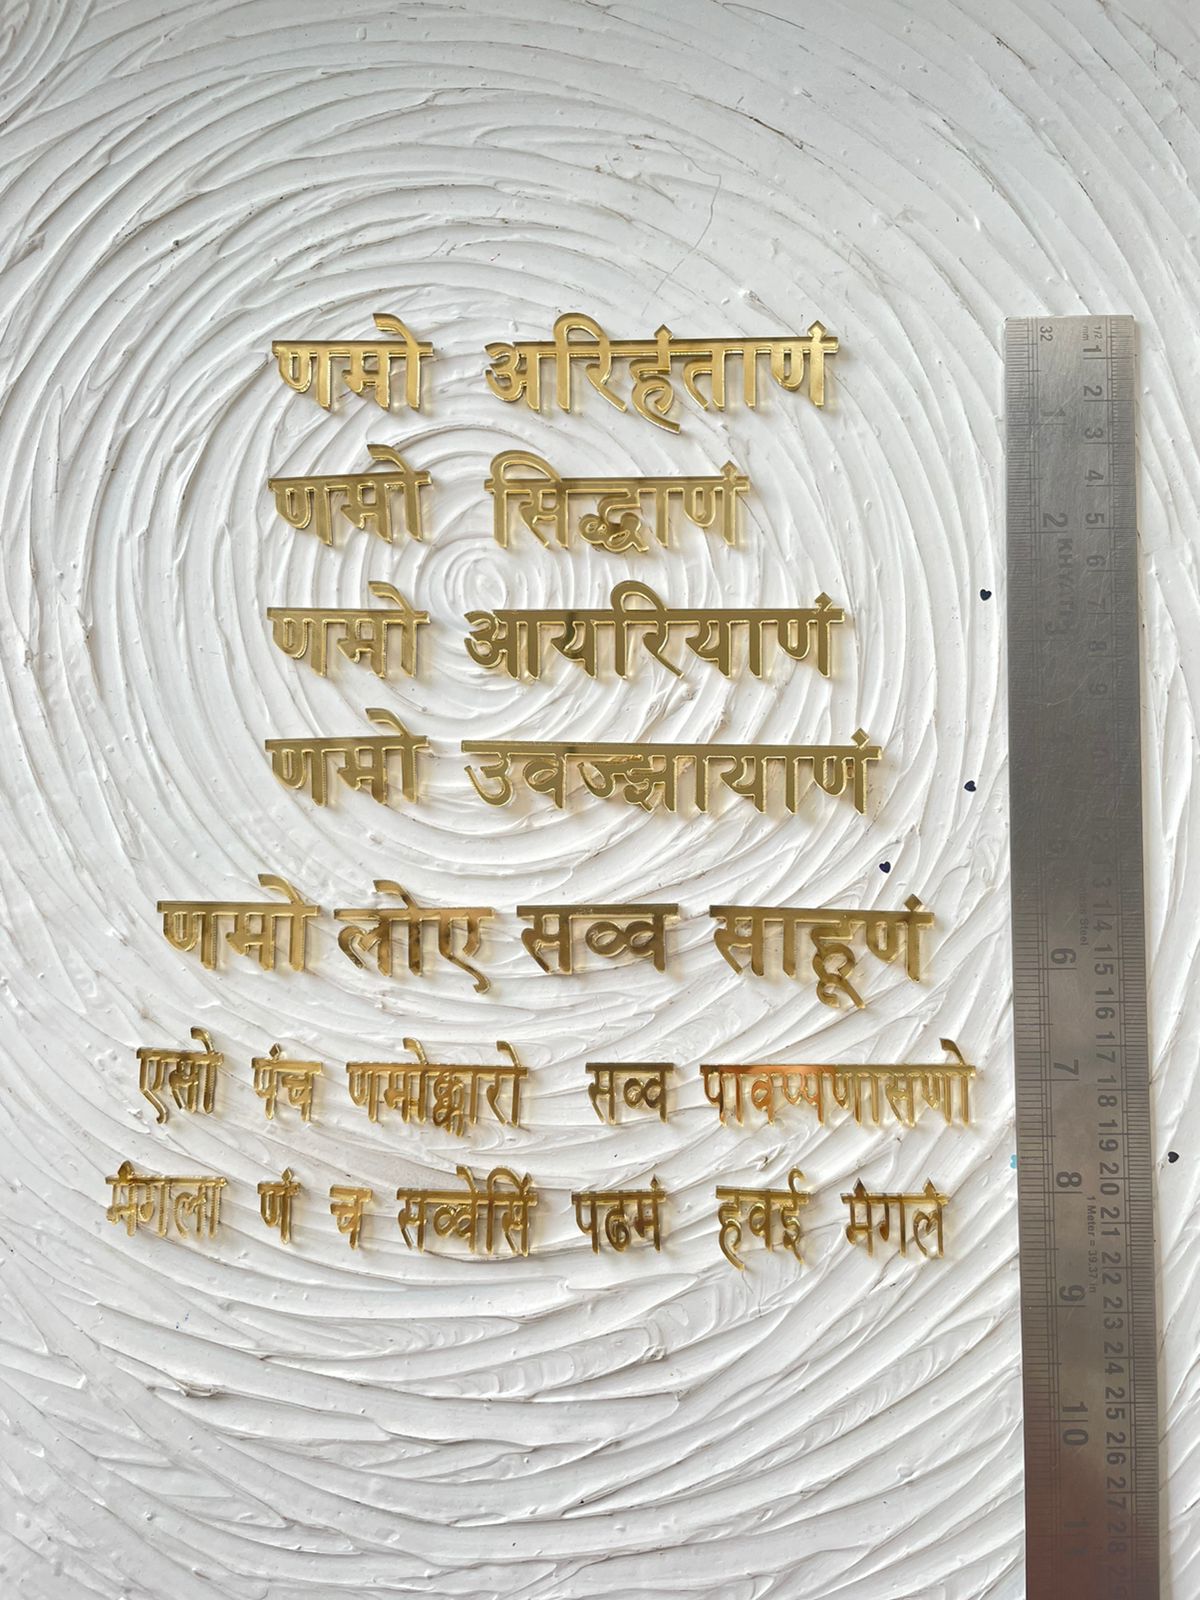 णमो अरिहंताणं
णमो सिद्धाणं
णमो आयरियाणं
णमो उवज्झायाणं
णमो लोए सव्व साहूणं
एसो पंच णमोक्कारो सव्व पावप्पणासणो
मंगला णं च सव्वेसिं पढमं हवई मंगलं
1/2 mm 1 2 3 4 5 6 7 8 9 10 11 12 13 14 15 16 17 18 19 20 21 22 23 24 25 26 27 28
32 1 2 3 6 7 8 9 10 11
1 Meter = 39.37 in